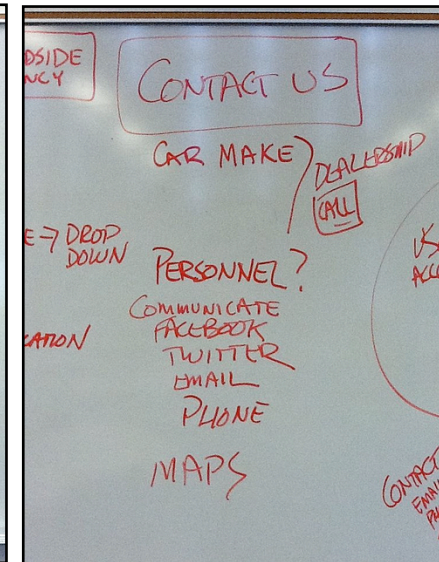 DSIDE
NCY
CONTACT US
CAR MAKE
DEALERSHIP
CALL
E → DROP
DOWN
PERSONNEL?
COMMUNICATE
FACEBOOK
TWITTER
EMAIL
PHONE
MAPS
CATION
US
ACC
CONTACT
EMAIL